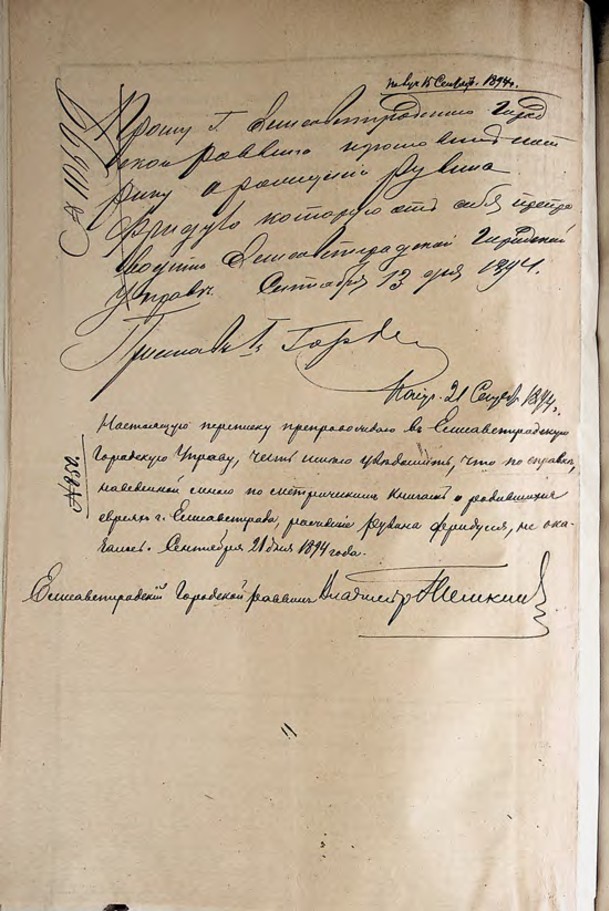 Получ. 15 Сентяб. 1894 г.
Прошу Г. Елисаветградского Город
ского Раввина произвесть
о рождении Рувина
Фридуса которую отъ себя
Елисаветградской Городской
Управѣ. Сентября 13 дня 1894.
Приставъ
Получ. 21 Сентяб. 1894 г.
Настоящую переписку препровождаю въ Елисаветградскую
Городскую Управу, честь имѣю увѣдомить, что по справкѣ,
наведенной мною по метрическимъ книгамъ о родившихся
евреяхъ г. Елисаветграда, рожденіе Рувина не ока-
залось. Сентября 21 дня 1894 года.
Елисаветградскій Городской раввинъ Владиміръ Темкинъ
№ 850.